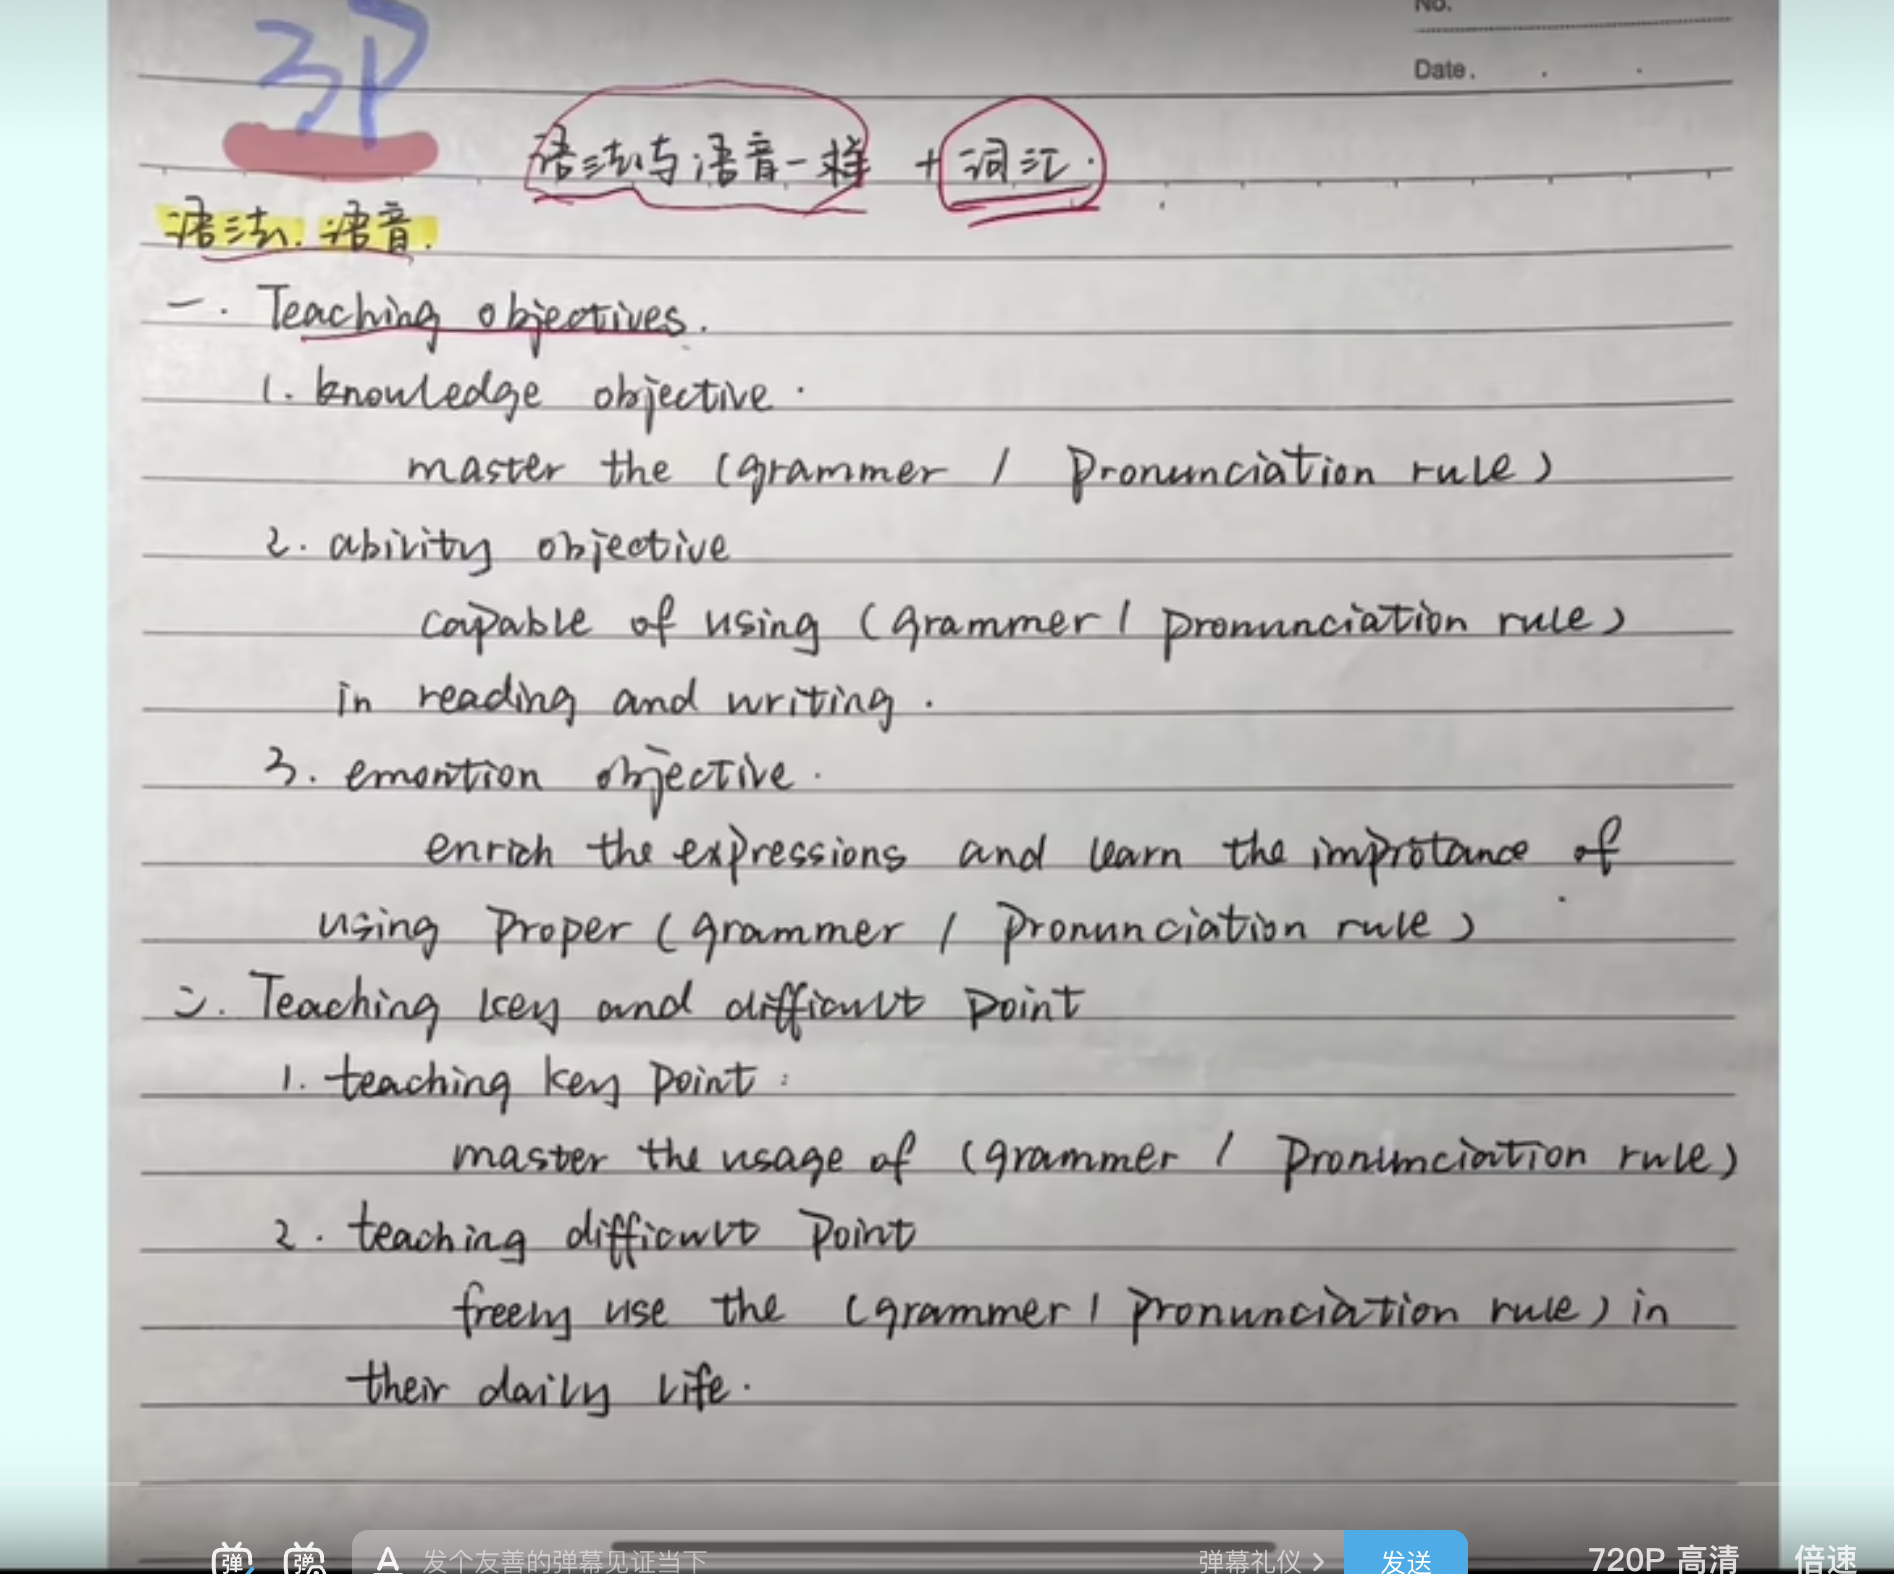 No.
Date.
3P
语法与语音一样 + 词汇.
语法. 语音.
一. Teaching objectives.
1. knowledge objective.
master the (grammer / pronunciation rule)
2. ability objective
capable of using (grammer / pronunciation rule)
in reading and writing.
3. emontion objective.
enrich the expressions and learn the improtance of
using proper (grammer / pronunciation rule)
二. Teaching key and difficult point
1. teaching key point:
master the usage of (grammer / pronunciation rule)
2. teaching difficult point
freely use the (grammer / pronunciation rule) in
their daily life.
弹 弹 A 发个友善的弹幕见证当下 弹幕礼仪 > 发送 720P 高清 倍速